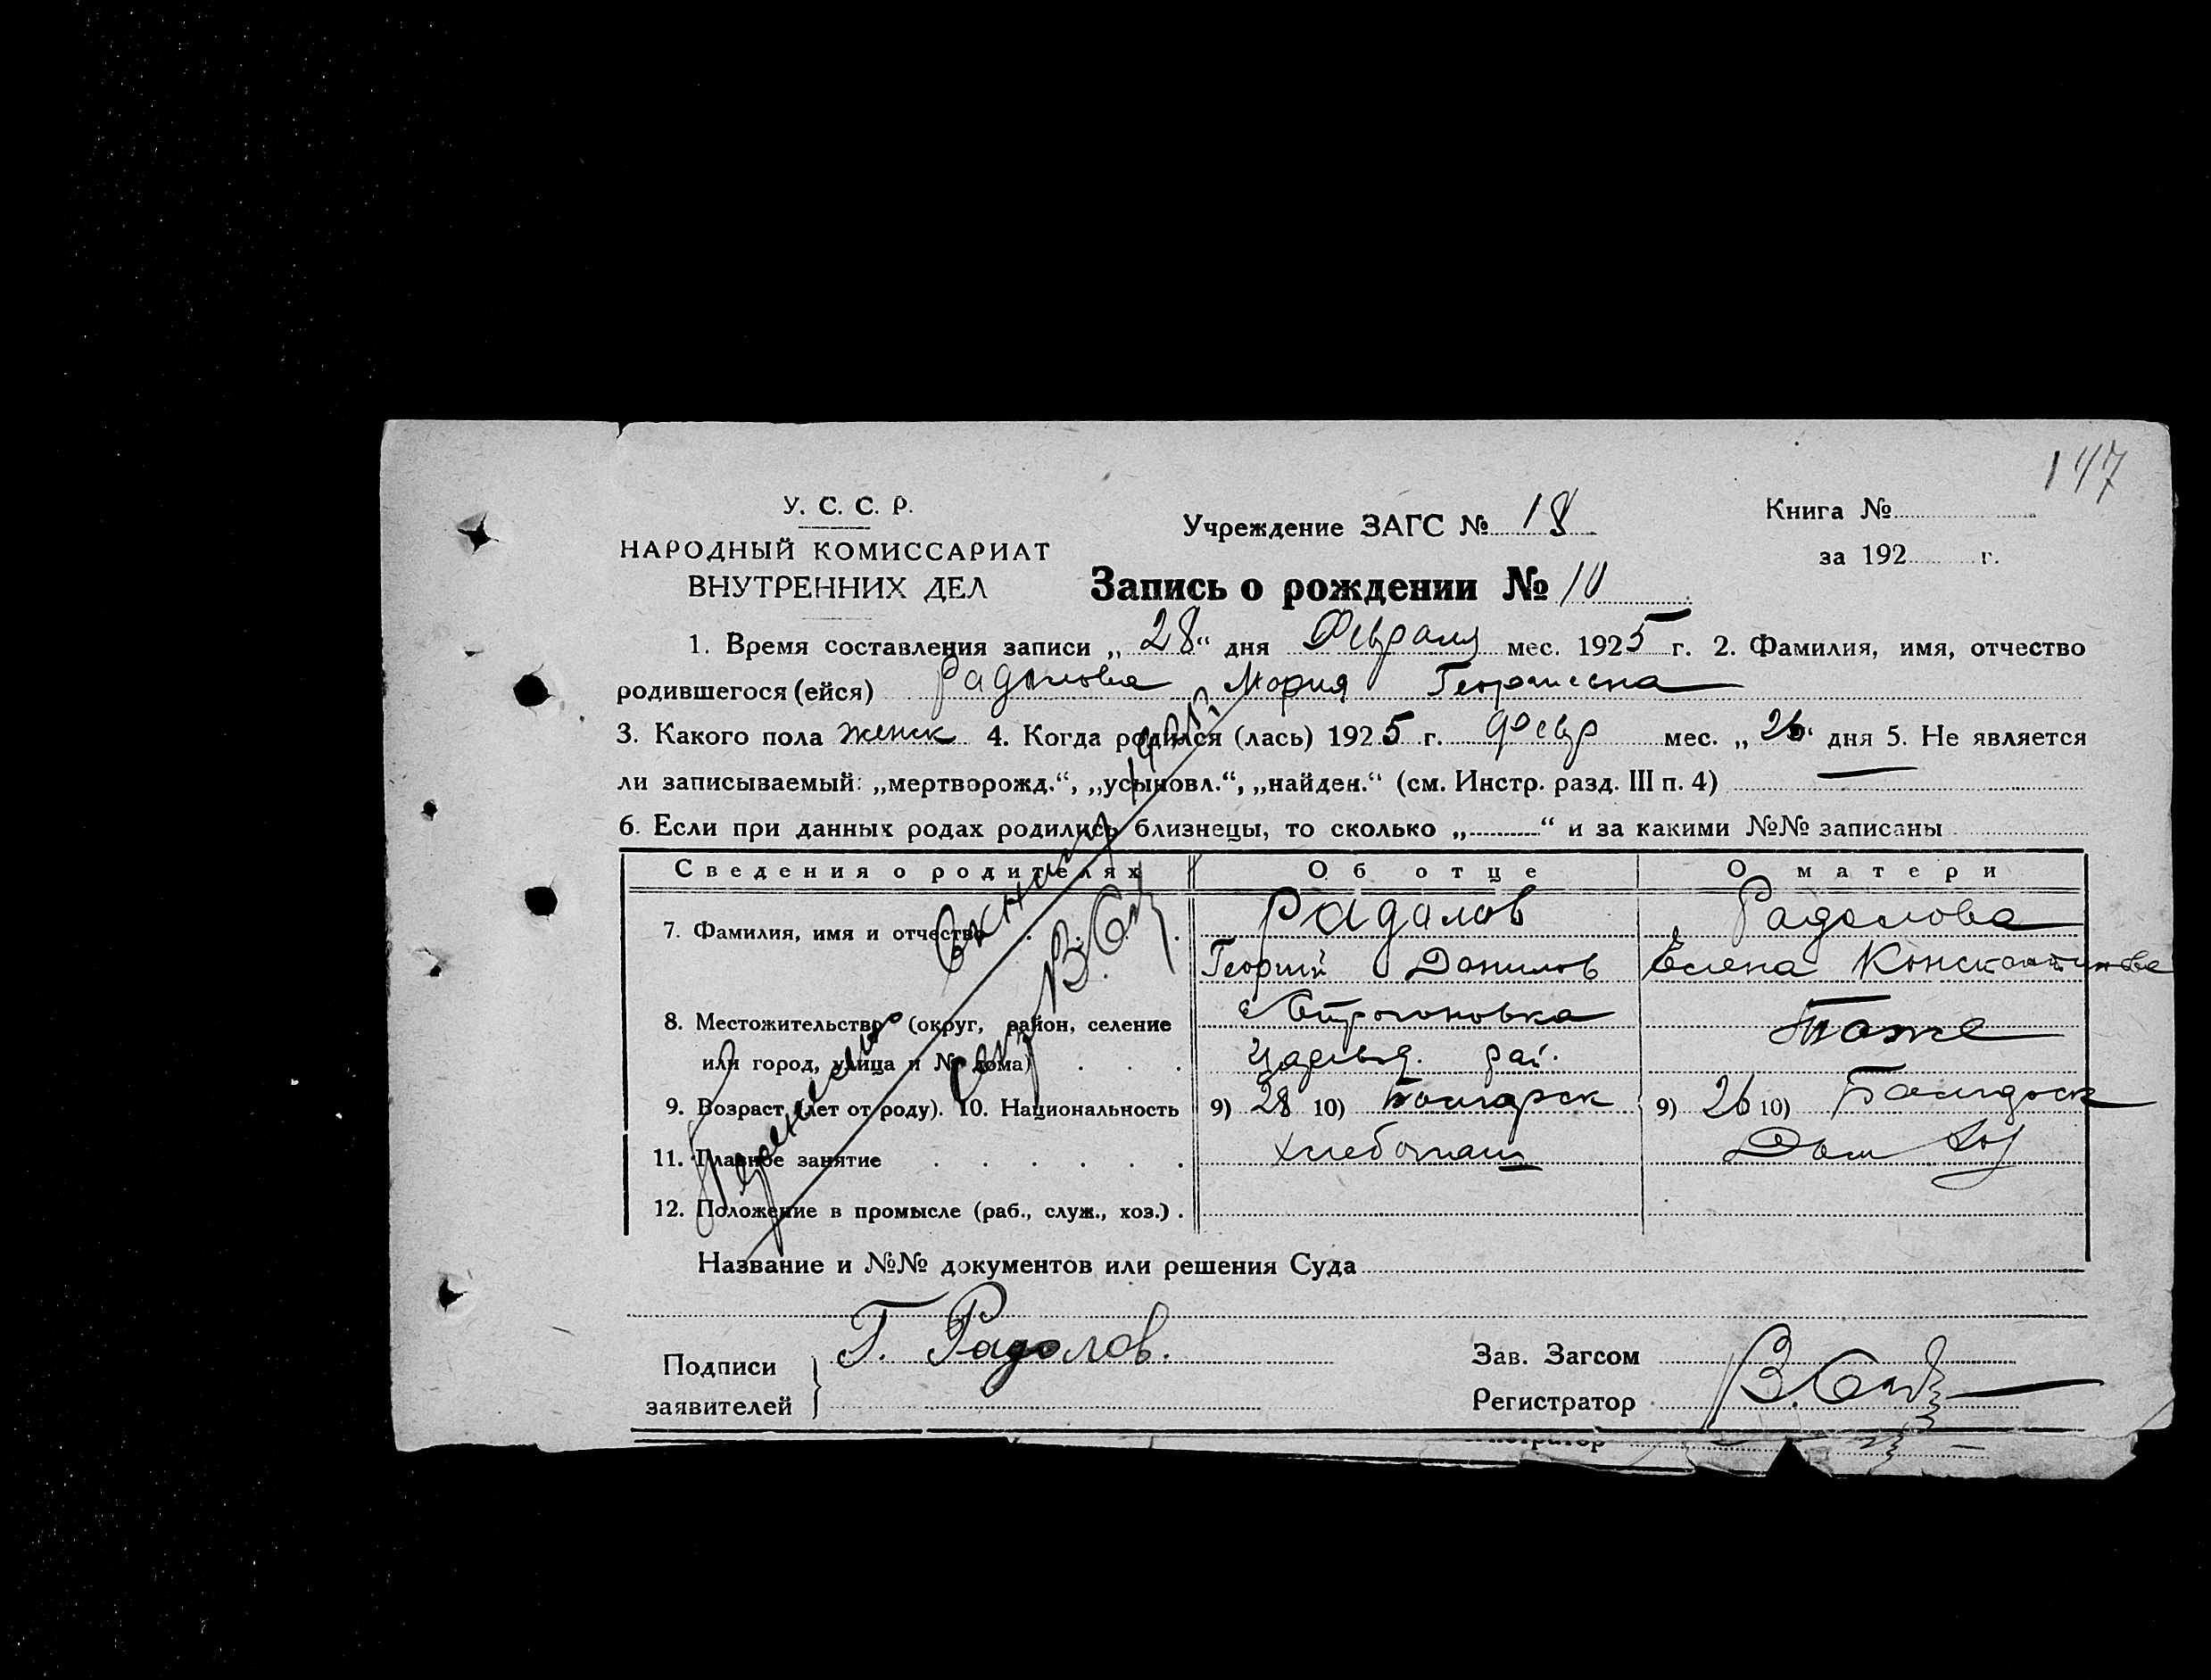 147
У. С. С. Р.
НАРОДНЫЙ КОМИССАРИАТ
ВНУТРЕННИХ ДЕЛ
Учреждение ЗАГС № 18
Книга №
за 192 г.
Запись о рождении № 10
1. Время составления записи „28“ дня Февраля мес. 1925 г. 2. Фамилия, имя, отчество
родившегося (ейся) Радолова Мария Георгиевна
3. Какого пола женск 4. Когда родился (лась) 1925 г. февр мес. „26“ дня 5. Не является
ли записываемый: „мертворожд.“, „усыновл.“, „найден.“ (см. Инстр. разд. III п. 4) —
6. Если при данных родах родились близнецы, то сколько „ “ и за какими №№ записаны
Сведения о родителях Об отце О матери
7. Фамилия, имя и отчество Радалов Радолова
Георгий Данилов Елена Константинова
8. Местожительство (округ, район, селение с Строгоновка Тоже
или город, улица и № дома) рай.
9. Возраст (лет от роду). 10. Национальность 9) 28 10) Болгарск 9) 26 10) Болгарск
11. Главное занятие хлебопаш Дом хоз
12. Положение в промысле (раб., служ., хоз.)
Перенесено в книгу
Название и №№ документов или решения Суда
Подписи заявителей Г. Радолов.
Зав. Загсом
Регистратор